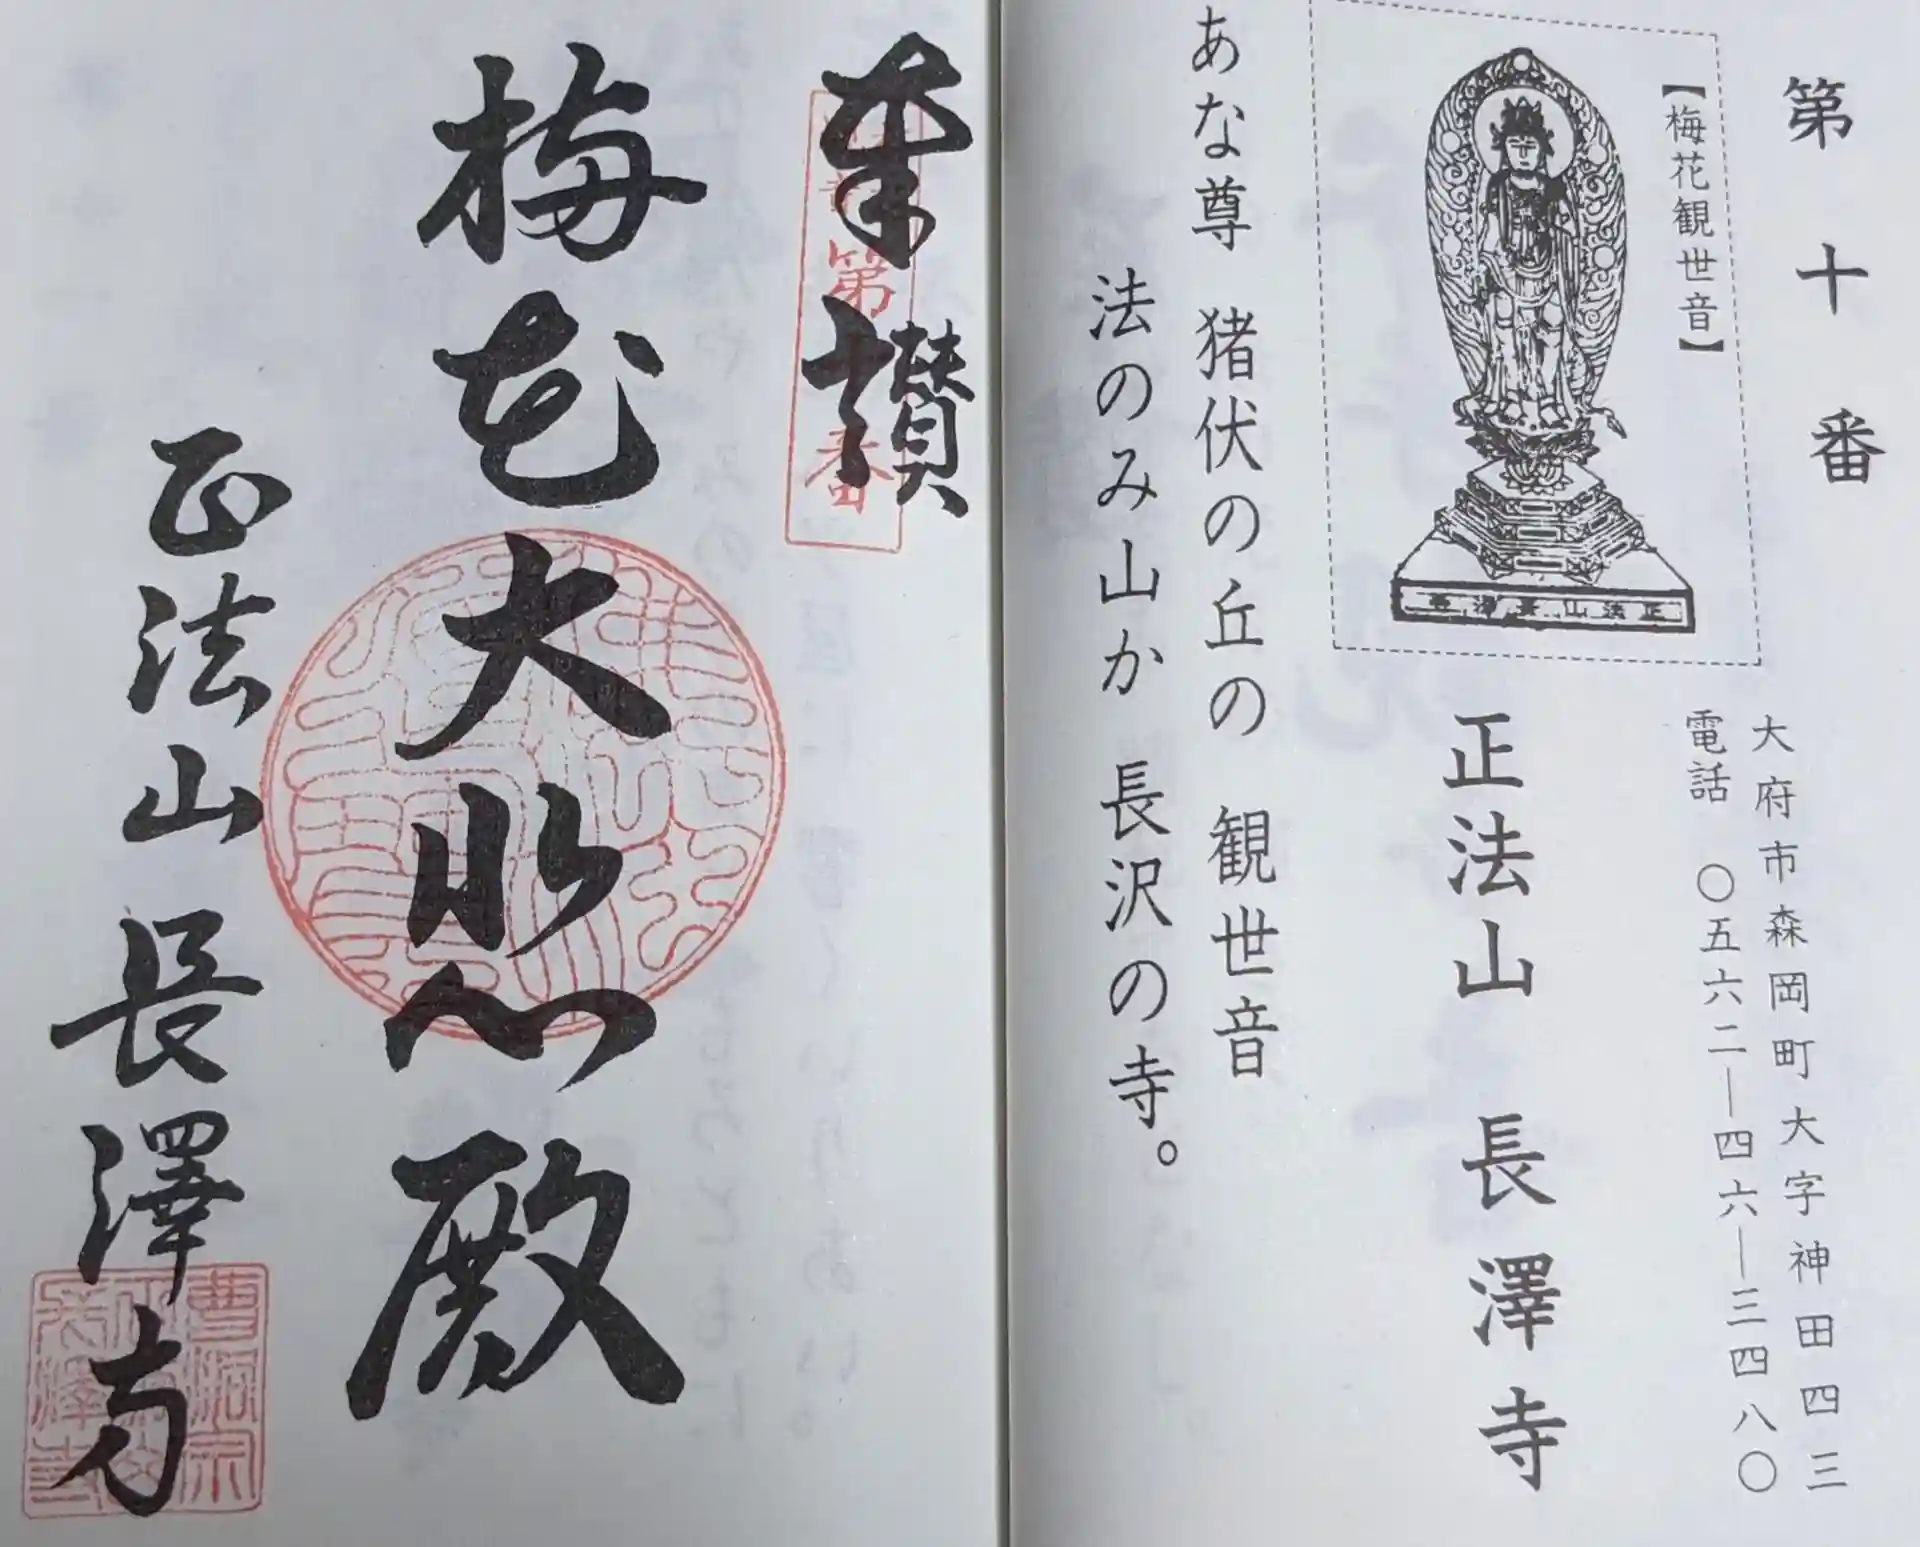 第十番
【梅花観世音】
正法山長澤寺
大府市森岡町大字神田四三
電話 〇五六二―四六―三四八〇
正法山 長澤寺
あな尊 猪伏の丘の 観世音
法のみ山か 長沢の寺。
奉讃
第
番
梅花大悲殿
正法山長澤寺
曹洞宗